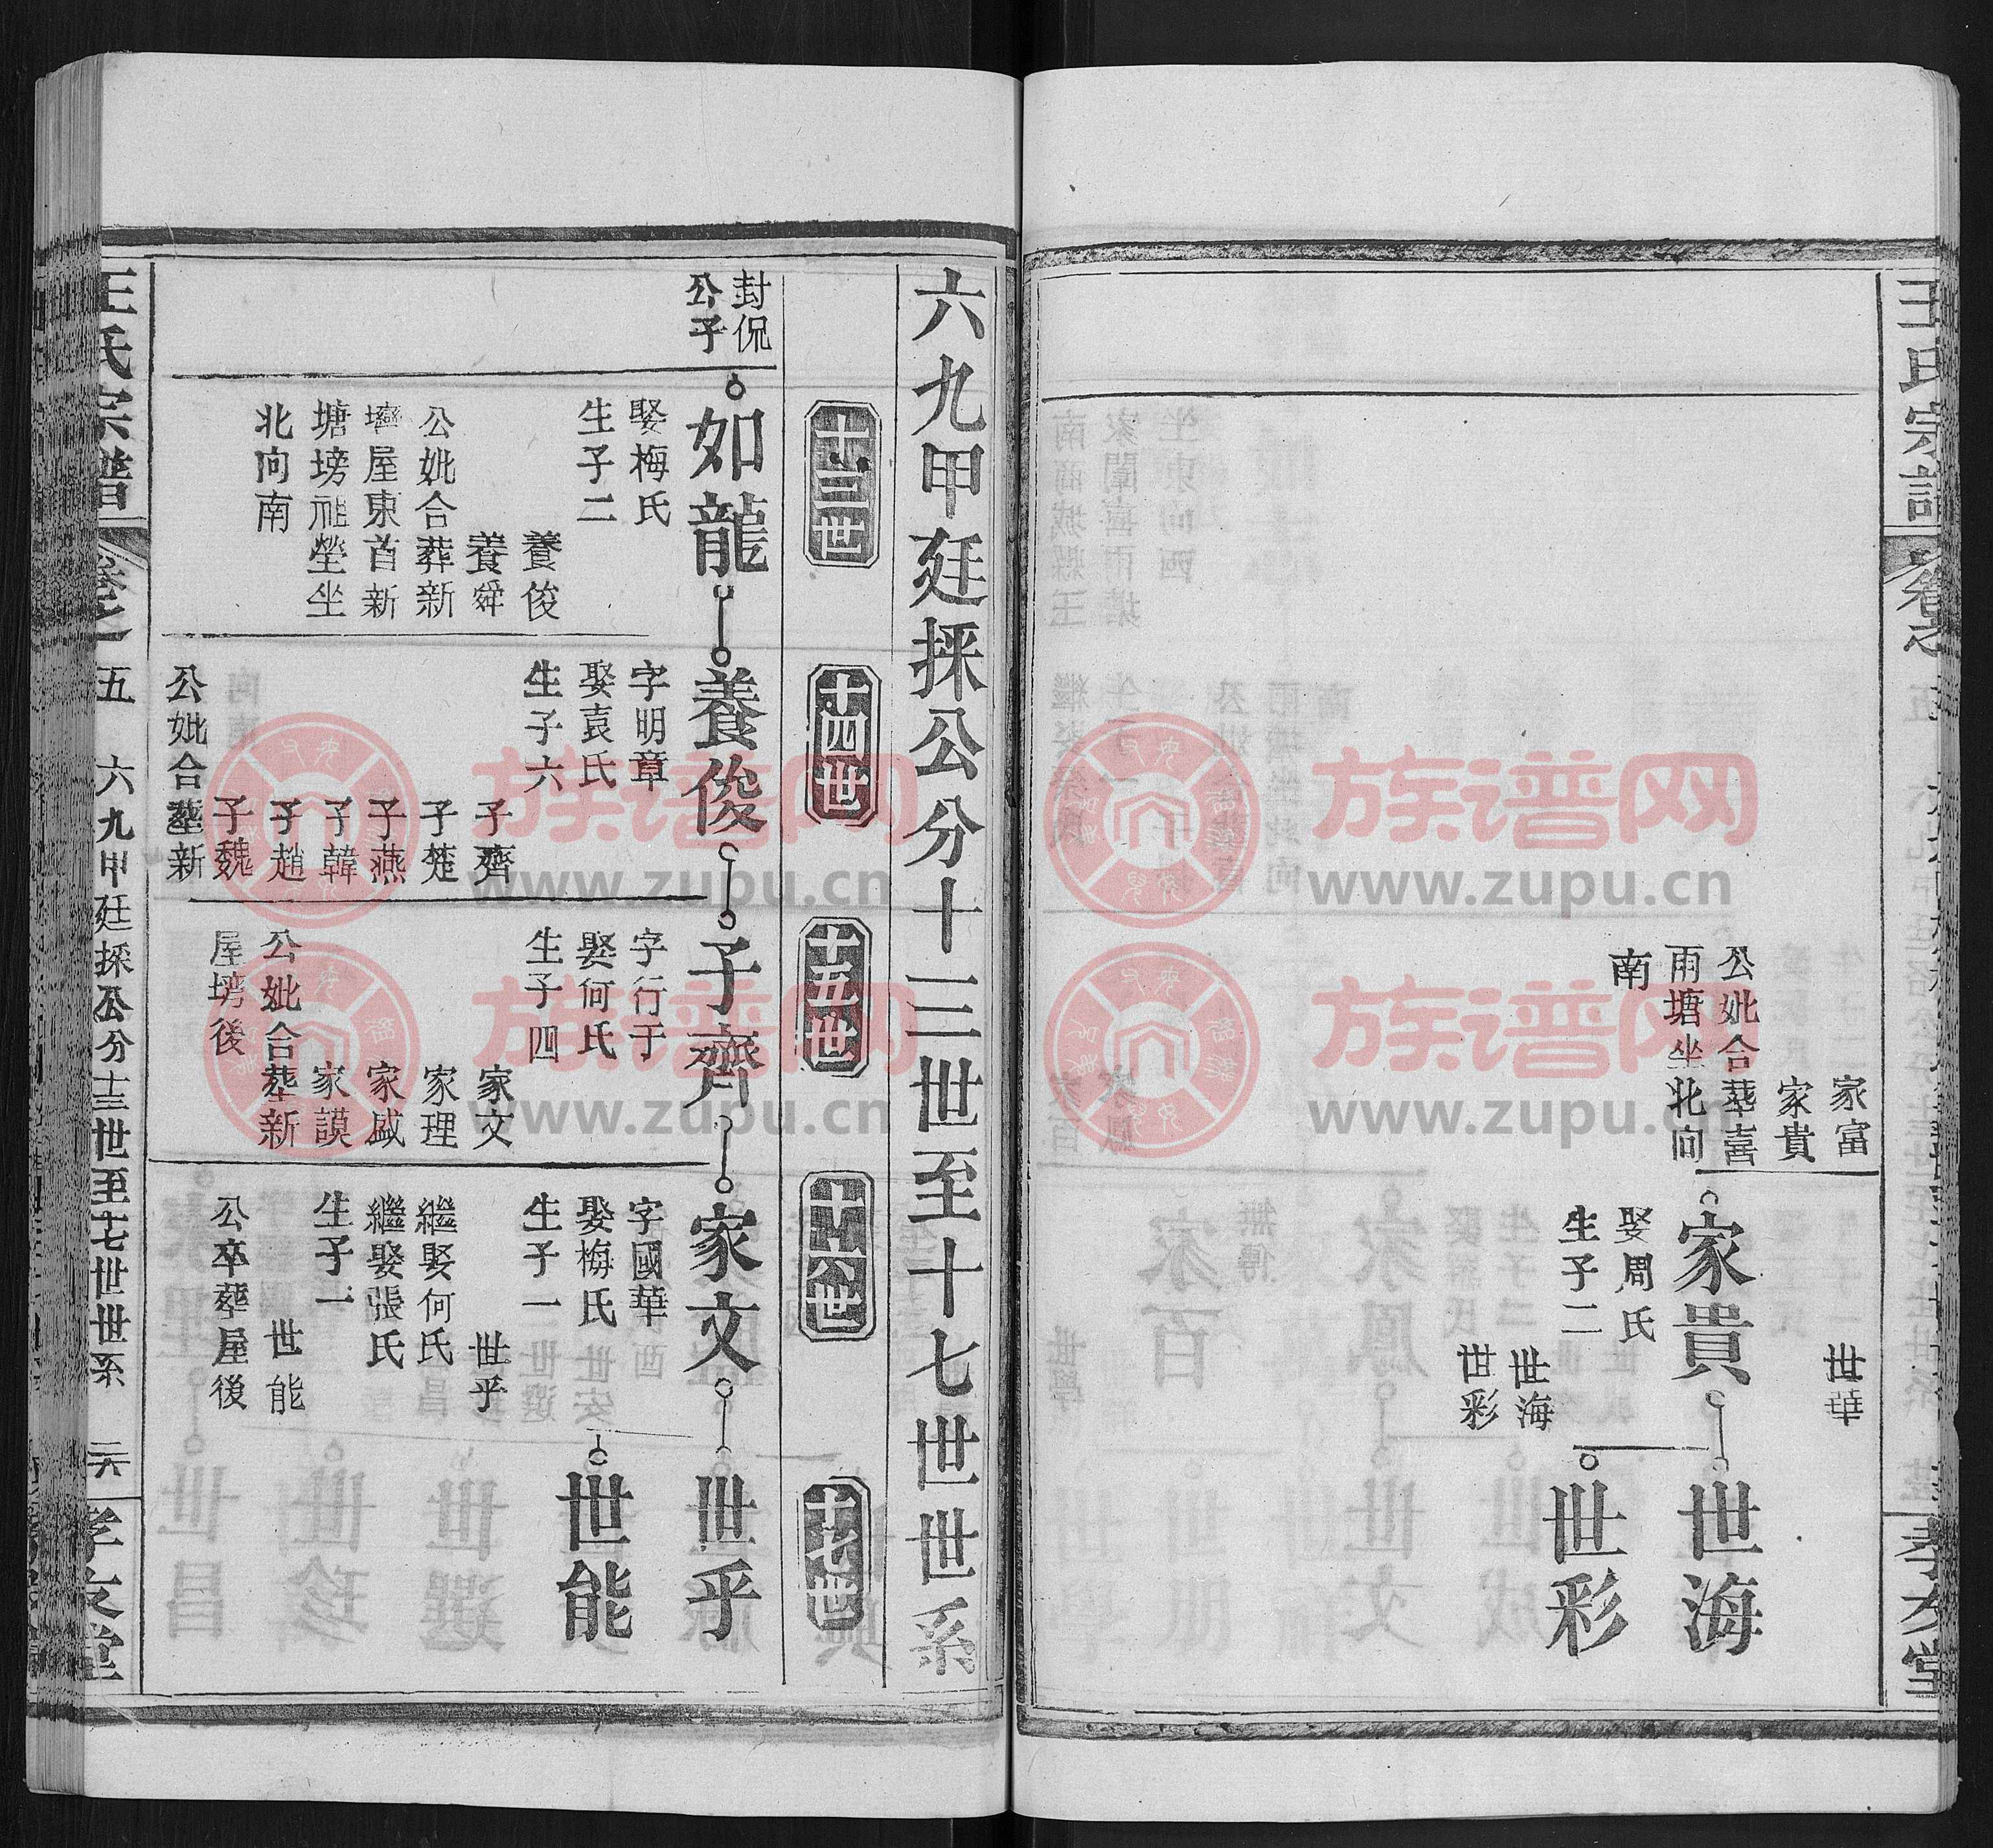 王氏宗譜
孝友堂
家富
家貴
公妣合葬喜
雨塘坐北向
南
世華
家貴
娶周氏
生子二
世海
世彩
世海
世彩
六九甲廷採公分十三世至十七世世系
十三世
十四世
十五世
十六世
十七世
封侃
公子
如龍
娶梅氏
生子二
養俊
養舜
公妣合葬新
壪屋東首新
塘塝祖塋坐
北向南
養俊
字明章
娶袁氏
生子六
子齊
子楚
子燕
子韓
子趙
子魏
公妣合葬新
子齊
字行于
娶何氏
生子四
家文
家理
家盛
家謨
公妣合葬新
屋塝後
家文
字國華
娶梅氏
生子一
世乎
繼娶何氏
繼娶張氏
生子一
世能
公卒葬屋後
世乎
世能
王氏宗譜
卷之
五
六九甲廷採公分十三世至十七世世系
二六
孝友堂
族谱网
www.zupu.cn
族谱网
www.zupu.cn
族谱网
www.zupu.cn
族谱网
www.zupu.cn